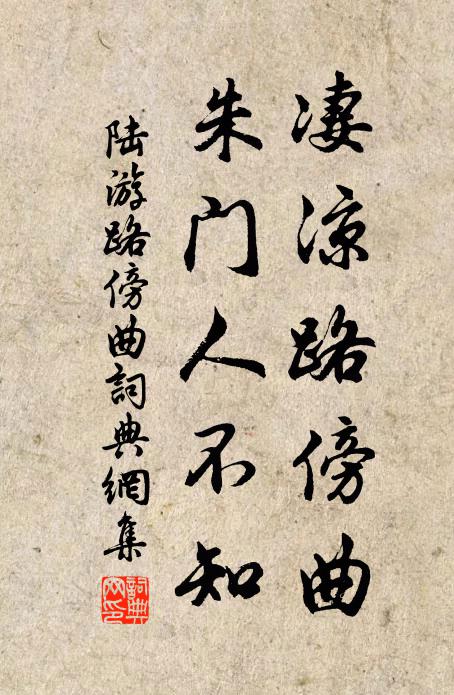 凄涼路傍曲
朱門人不知
陆游路傍曲詞典網集
詞典
网印